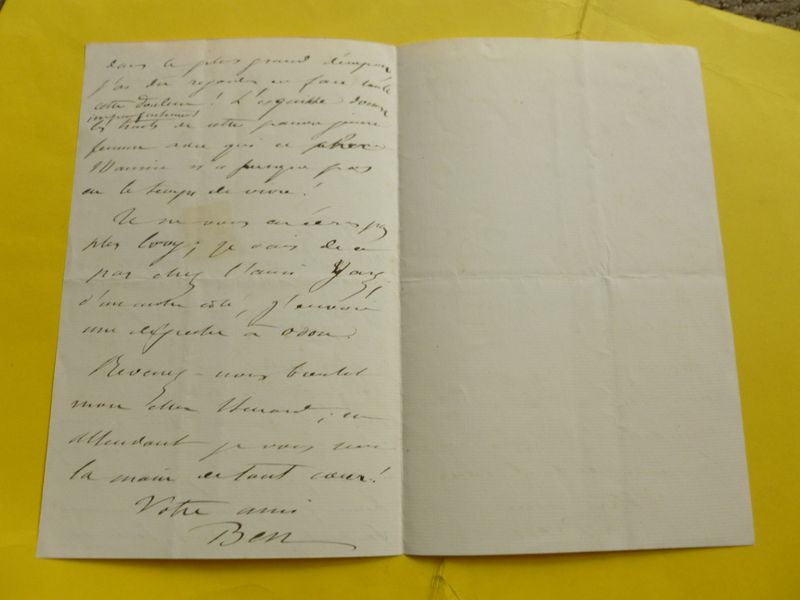 dans le plus grand
j'ai du regarder en face toute
cette douleur! L'esquisse donne
imparfaitement
les traits de votre pauvre jeune
femme a qui ce
Mannin n'a presque pas
eu le temps de vivre!
Je ne vous en écris pas
plus long; je vais de ce
pas chez l'ami
d'un autre côté, j'envoie
une dépêche à
Revenez-nous bientôt
mon cher ; en
attendant je vous serre
la main de tout cœur!
Votre ami
Ben